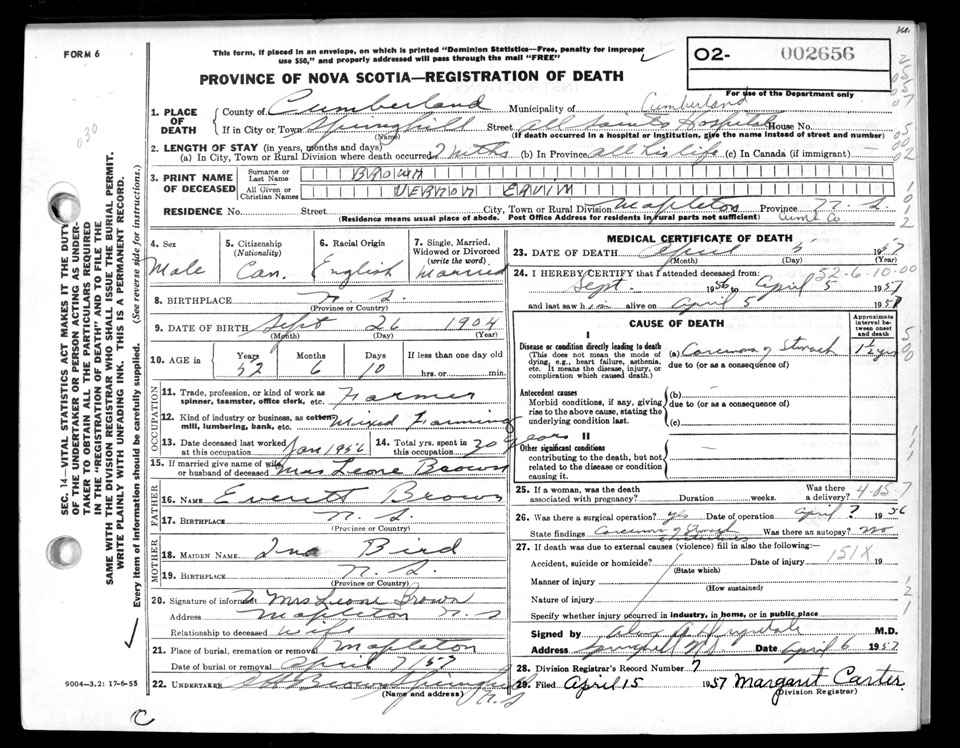 FORM 6
This form, if placed in an envelope, on which is printed "Dominion Statistics—Free, penalty for improper
use $50," and properly addressed will pass through the mail "FREE"
O2- 002656
For use of the Department only
PROVINCE OF NOVA SCOTIA—REGISTRATION OF DEATH
1. PLACE OF DEATH
County of Cumberland Municipality of Cumberland
If in City or Town Springhill Street All Saints Hospital House No.
(Name) (If death occurred in a hospital or institution, give the name instead of street and number)
2. LENGTH OF STAY (in years, months and days)
(a) In City, Town or Rural Division where death occurred 2 mths (b) In Province all his life (c) In Canada (if immigrant) —
3. PRINT NAME OF DECEASED
Surname or Last Name BROWN
All Given or Christian Names VERNON ERVIN
RESIDENCE No. Street City, Town or Rural Division Mapleton Province N.S.
(Residence means usual place of abode. Post Office Address for residents in rural parts not sufficient) Cum. Co
4. Sex Male
5. Citizenship (Nationality) Can.
6. Racial Origin English
7. Single, Married, Widowed or Divorced (write the word) Married
8. BIRTHPLACE N.S.
(Province or Country)
9. DATE OF BIRTH Sept 26 1904
(Month) (Day) (Year)
10. AGE in Years 52 Months 6 Days 10 If less than one day old hrs. or min.
OCCUPATION
11. Trade, profession, or kind of work as spinner, teamster, office clerk, etc. Farmer
12. Kind of industry or business, as cotton mill, lumbering, bank, etc. Mixed Farming
13. Date deceased last worked at this occupation Jan 1956
14. Total yrs. spent in this occupation 30 years
15. If married give name of wife or husband of deceased Mrs Leone Brown
FATHER
16. NAME Everett Brown
17. BIRTHPLACE N.S.
(Province or Country)
MOTHER
18. MAIDEN NAME Ina Bird
19. BIRTHPLACE N.S.
(Province or Country)
20. Signature of informant Mrs Leone Brown
Address Mapleton N S
Relationship to deceased wife
21. Place of burial, cremation or removal Mapleton
Date of burial or removal April 7/57
22. UNDERTAKER Brown Springhill N.S
(Name and address)
MEDICAL CERTIFICATE OF DEATH
23. DATE OF DEATH April 5 1957
(Month) (Day) (Year)
24. I HEREBY CERTIFY that I attended deceased from: 52-6-10-00
Sept. 1956 to April 5 1957
and last saw him alive on April 5 1957
CAUSE OF DEATH
Approximate interval between onset and death
I
Disease or condition directly leading to death
(This does not mean the mode of dying, e.g., heart failure, asthenia, etc. It means the disease, injury, or complication which caused death.)
(a) Carcinoma of Stomach 1½ yrs
due to (or as a consequence of)
Antecedent causes
Morbid conditions, if any, giving rise to the above cause, stating the underlying condition last.
(b) —
due to (or as a consequence of)
(c)
II
Other significant conditions
contributing to the death, but not related to the disease or condition causing it.
25. If a woman, was the death associated with pregnancy? Duration weeks. Was there a delivery?
26. Was there a surgical operation? yes Date of operation April 7 1956
State findings Carcinoma of Stomach Was there an autopsy? No
27. If death was due to external causes (violence) fill in also the following:—
Accident, suicide or homicide? Date of injury 151X 19
(State which)
Manner of injury
(How sustained)
Nature of injury
Specify whether injury occurred in industry, in home, or in public place
Signed by M.D.
Address Springhill N.S. Date April 6 1957
28. Division Registrar's Record Number 7
29. Filed April 15 1957 Margaret Carter
(Division Registrar)
SEC. 14—VITAL STATISTICS ACT MAKES IT THE DUTY
OF THE UNDERTAKER OR PERSON ACTING AS UNDER-
TAKER TO OBTAIN ALL THE PARTICULARS REQUIRED
IN THE "REGISTRATION OF DEATH" AND TO FILE THE
SAME WITH THE DIVISION REGISTRAR WHO SHALL ISSUE THE BURIAL PERMIT.
WRITE PLAINLY WITH UNFADING INK. THIS IS A PERMANENT RECORD.
Every item of information should be carefully supplied. (See reverse side for instructions.)
030
9004-3.2: 17-6-55
C